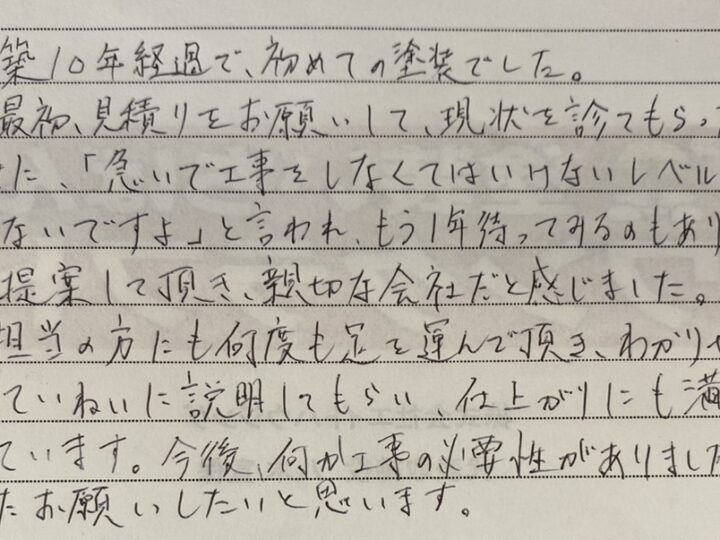 築10年経過で、初めての塗装でした。
最初、見積りをお願いして、現状を診てもらっ
た、「急いで工事をしなくてはいけないレベル
ないですよ」と言われ、もう1年待ってみるのもあり
提案して頂き、親切な会社だと感じました。
担当の方にも何度も足を運んで頂き、わかりや
ていねいに説明してもらい、仕上がりにも満
ています。今後、何か工事の必要性がありました
たお願いしたいと思います。